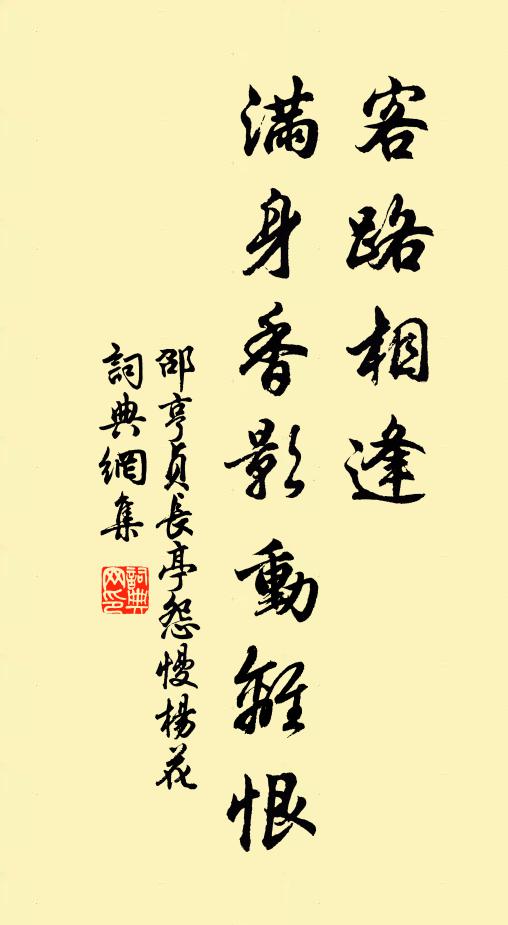 客路相逢
滿身香影動離恨
邵亨貞長亭怨慢楊花
詞典網集
詞典网印